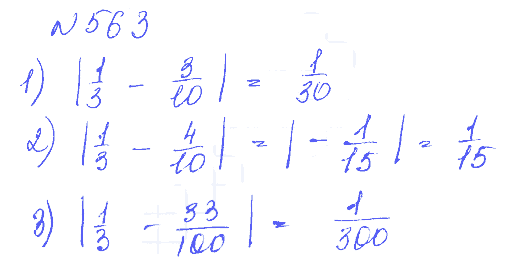 №563
1) |1/3 - 3/10| = 1/30
2) |1/3 - 4/10| = |-1/15| = 1/15
3) |1/3 - 33/100| = 1/300